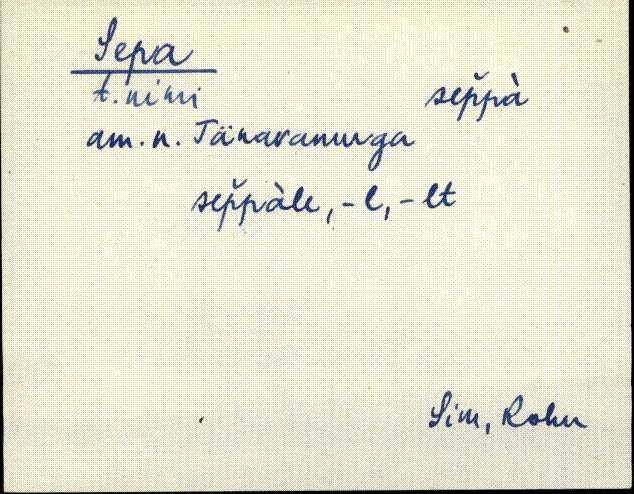 Sepa
t. nimi sep̆pà
am. n. Tänavanurga
sep̆pàle, -l, -lt
Sim, Rohu